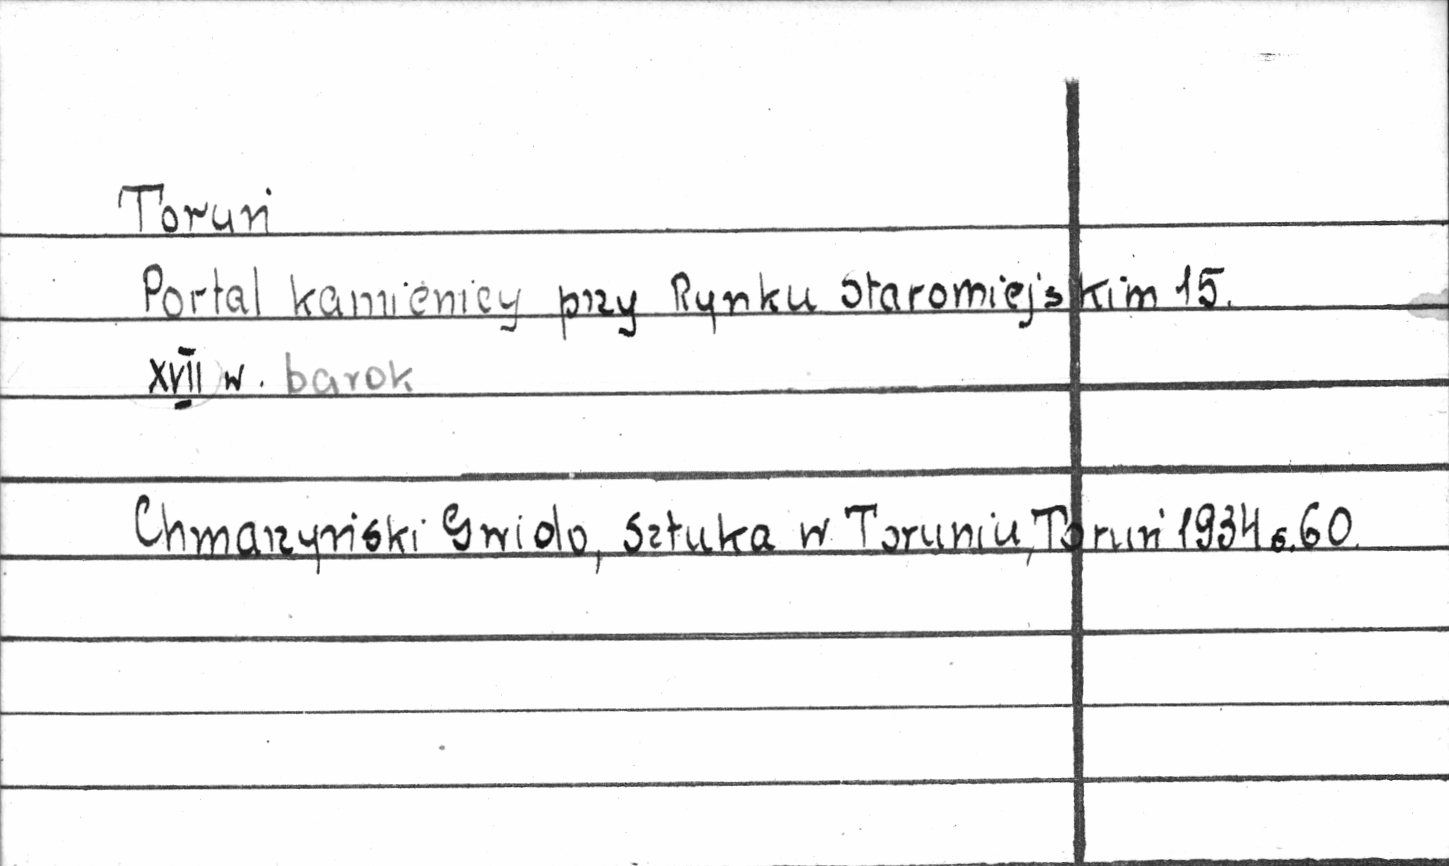 Toruń
Portal kamienicy przy Rynku Staromiejskim 15.
XVII w. barok
Chmarzyński Gwido, Sztuka w Toruniu, Toruń 1934 s. 60.